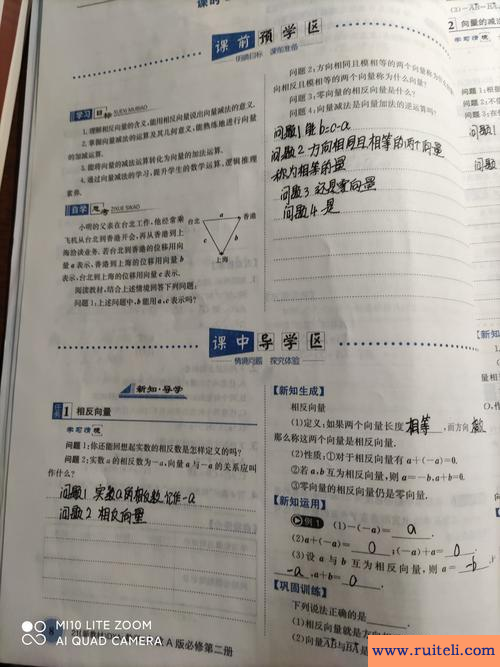 课前预学区
明确目标 课前准备
学习目标
1.理解相反向量的含义,能用相反向量说出向量减法的意义.
2.掌握向量减法的运算及其几何意义,能熟练地进行向量
的加减运算.
3.能将向量的减法运算转化为向量的加法运算.
4.通过向量减法的学习,提升学生的数学运算、逻辑推理
素养.
自学思考 ZIXUE SIKAO
小明的父亲在台北工作,他经常乘
飞机从台北到香港开会,再从香港到上
海洽谈业务.若台北到香港的位移用向
量a表示,香港到上海的位移用向量b
表示,台北到上海的位移用向量c表示.
台北
香港
上海
a
b
c
阅读教材,结合上述情境回答下列问题:
问题1:上述问题中,b能用a,c表示吗?
问题2:方向相同且模相等的两个向量称为
向相反且模相等的两个向量称为什么向量?
问题3:零向量的相反向量是什么?
问题4:向量减法是向量加法的逆运算吗?
问题1 能 b=c-a
问题2 方向相同且相等的两个向量
称为相等向量
问题3 还是零向量
问题4 是
课中导学区
情境问题 探究体验
新知·导学
1 相反向量
学习情境
问题1:你还能回想起实数的相反数是怎样定义的吗?
问题2:实数a的相反数为-a,向量a与-a的关系应叫
作什么?
问题1 实数a的相反数记作-a
问题2 相反向量
【新知生成】
相反向量
(1)定义:如果两个向量长度 相等 ,而方向
那么称这两个向量是相反向量.
(2)性质:①对于相反向量有a+(-a)=0.
②若a,b互为相反向量,则a=-b,a+b=0.
③零向量的相反向量仍是零向量.
【新知运用】
例1 (1)-(-a)= a .
(2)a+(-a)= 0 ;(-a)+a= 0 .
(3)设a与b互为相反向量,则a= -b ,
-a ,a+b= 0 .
【巩固训练】
下列说法正确的是
(1)相反向量就是方向
(2)向量AB与BA是
2 向量的减
学习情境
问题1:
问题2:
8
A版必修第二册
MI10 LITE ZOOM
AI QUAD CAMERA
www.ruiteli.com